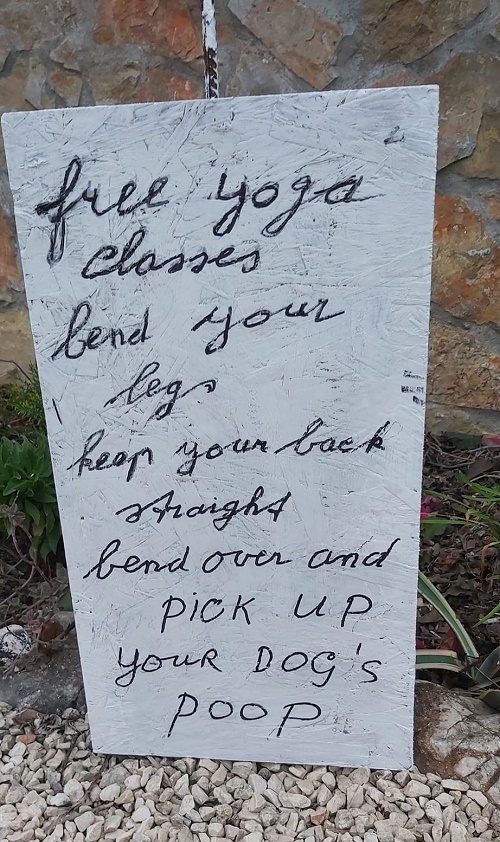 free yoga
classes
bend your
legs
keep your back
straight
bend over and
PiCK UP
YOUR DOG's
POOP